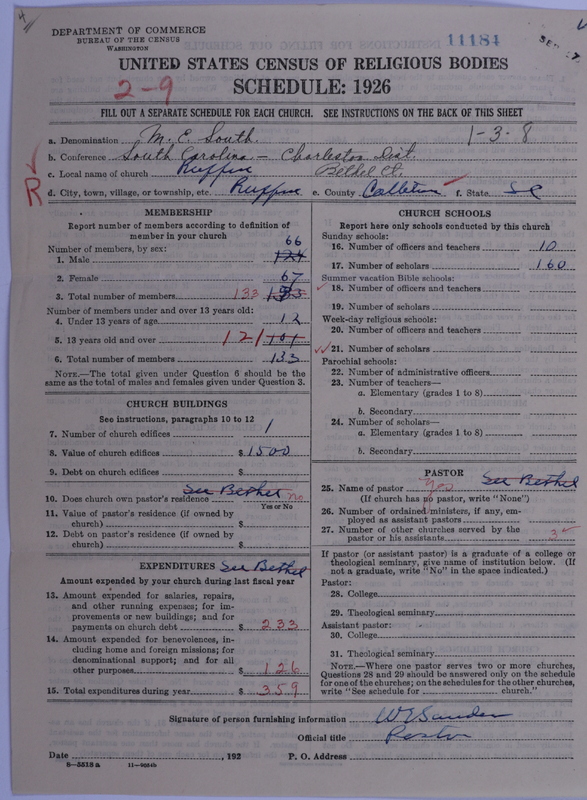 DEPARTMENT OF COMMERCE
BUREAU OF THE CENSUS
WASHINGTON
11184
UNITED STATES CENSUS OF RELIGIOUS BODIES
2-9
SCHEDULE: 1926
FILL OUT A SEPARATE SCHEDULE FOR EACH CHURCH. SEE INSTRUCTIONS ON THE BACK OF THIS SHEET
a. Denomination M. E. South. 1-3-8
b. Conference South Carolina - Charleston Dist.
c. Local name of church Ruffin Bethel Ct.
R d. City, town, village, or township, etc. Ruffin e. County Colleton f. State SC
MEMBERSHIP
Report number of members according to definition of
member in your church
Number of members, by sex:
66
1. Male
2. Female 67
3. Total number of members 133
Number of members under and over 13 years old:
4. Under 13 years of age 12
5. 13 years old and over 121 101
6. Total number of members 133
NOTE.—The total given under Question 6 should be
same as the total of males and females given under Question 3.
CHURCH BUILDINGS
See instructions, paragraphs 10 to 12
7. Number of church edifices 1
8. Value of church edifices $ 1500
9. Debt on church edifices $
See Bethel
10. Does church own pastor's residence no
Yes or No
11. Value of pastor's residence (if owned by
church) $
12. Debt on pastor's residence (if owned by
church) $
EXPENDITURES See Bethel
Amount expended by your church during last fiscal year
13. Amount expended for salaries, repairs,
and other running expenses; for im-
provements or new buildings; and for
payments on church debt $ 233
14. Amount expended for benevolences, in-
cluding home and foreign missions; for
denominational support; and for all
other purposes $ 126
15. Total expenditures during year $ 359
CHURCH SCHOOLS
Report here only schools conducted by this church
Sunday schools:
16. Number of officers and teachers 10
17. Number of scholars 160
Summer vacation Bible schools:
18. Number of officers and teachers
19. Number of scholars
Week-day religious schools:
20. Number of officers and teachers
21. Number of scholars
Parochial schools:
22. Number of administrative officers
23. Number of teachers—
a. Elementary (grades 1 to 8)
b. Secondary
24. Number of scholars—
a. Elementary (grades 1 to 8)
b. Secondary
PASTOR
25. Name of pastor Yes See Bethel
(If church has no pastor, write "None")
26. Number of ordained ministers, if any, em-
ployed as assistant pastors
27. Number of other churches served by the
pastor or his assistants 3
If pastor (or assistant pastor) is a graduate of a college or
theological seminary, give name of institution below. (If
not a graduate, write "No" in the space indicated.)
Pastor:
28. College
29. Theological seminary
Assistant pastor:
30. College
31. Theological seminary
NOTE.—Where one pastor serves two or more churches,
Questions 28 and 29 should be answered only on the schedule
for one of the churches; on the schedules for the other churches,
write "See schedule for church."
Signature of person furnishing information
Official title Pastor
Date , 192 P. O. Address
8—5518 a